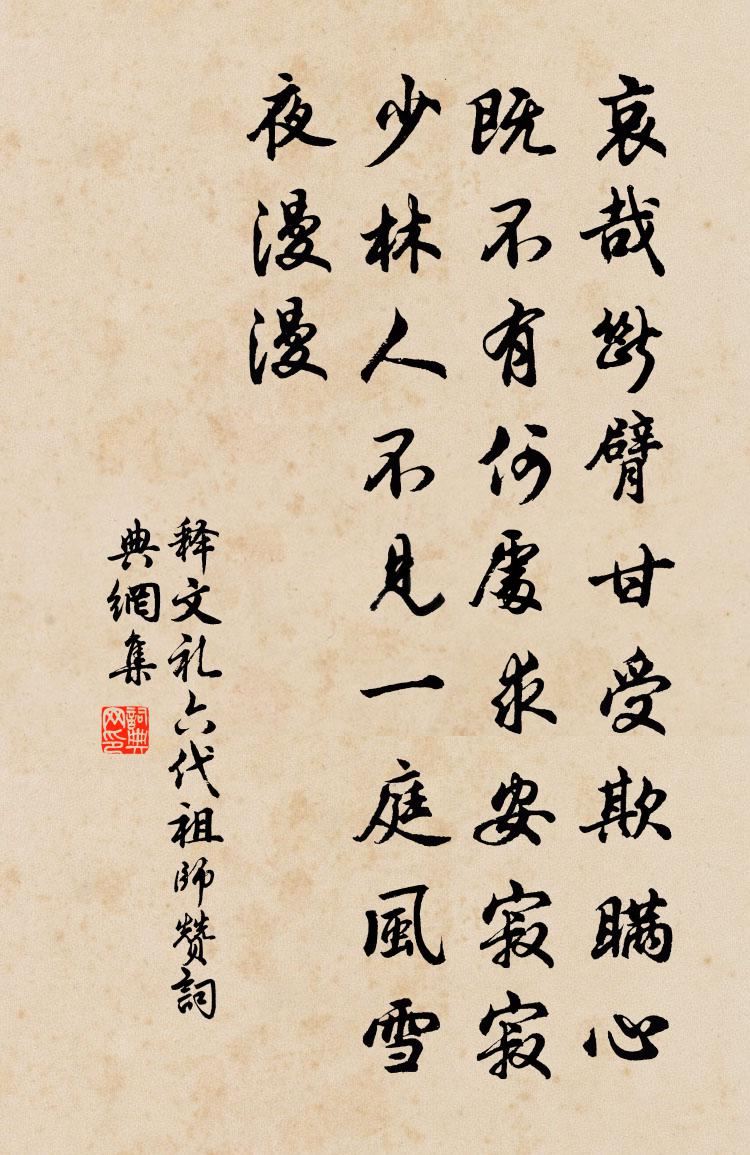 哀哉断臂甘受欺瞒心
既不有何處求安寂寂
少林人不见一庭風雪
夜漫漫
释文礼六代祖师赞詞
典網集
詞典
网印